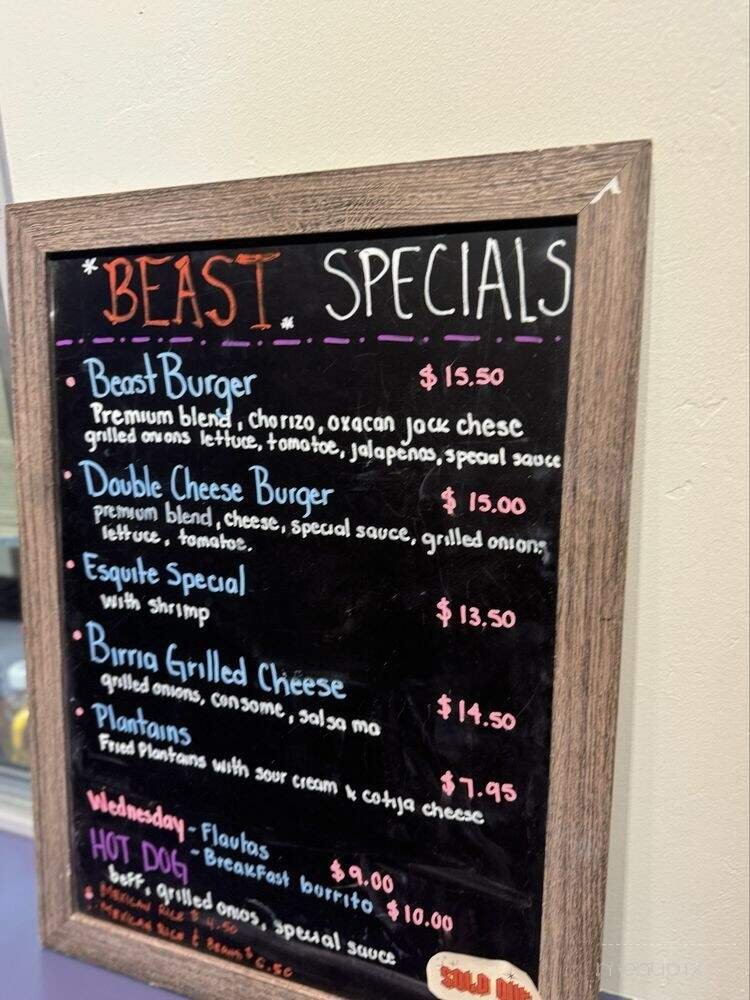 *BEAST* SPECIALS
• Beast Burger $15.50
Premium blend, chorizo, oxacan jack chese
grilled onions lettuce, tomatoe, jalapeños, special sauce
• Double Cheese Burger $ 15.00
premium blend, cheese, special sauce, grilled onions,
lettuce, tomatoe.
• Esquite Special
with shrimp $13.50
• Birria Grilled Cheese
grilled onions, consome, salsa ma $14.50
• Plantains
Fried Plantains with sour cream & cotija cheese $7.95
Wednesday - Flautas $9.00
HOT DOG - Breakfast burrito $10.00
beff, grilled onios, special sauce
• MEXICAN RICE $ 4.50
• MEXICAN RICE & BEANS $ 6.50
SOLD OUT